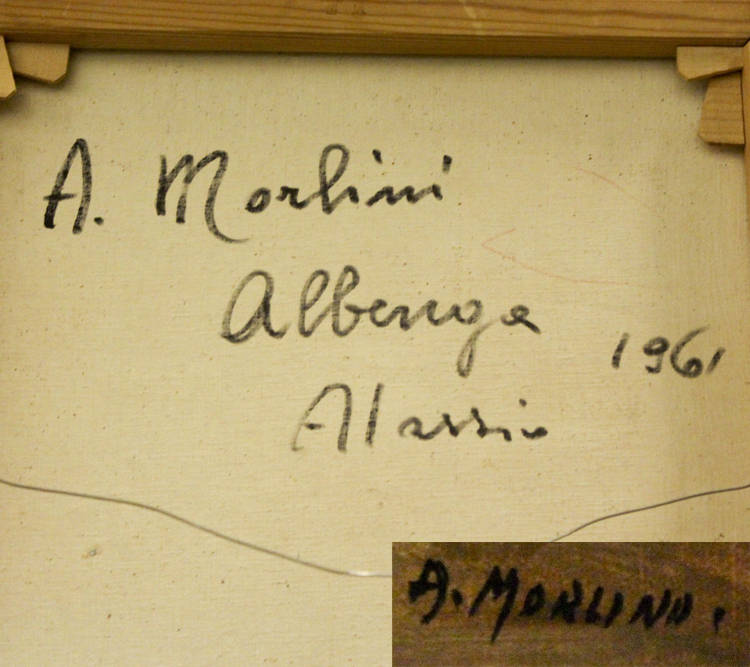 A. Morlini
Albenga
1961
Alassio
A. MORLINO.